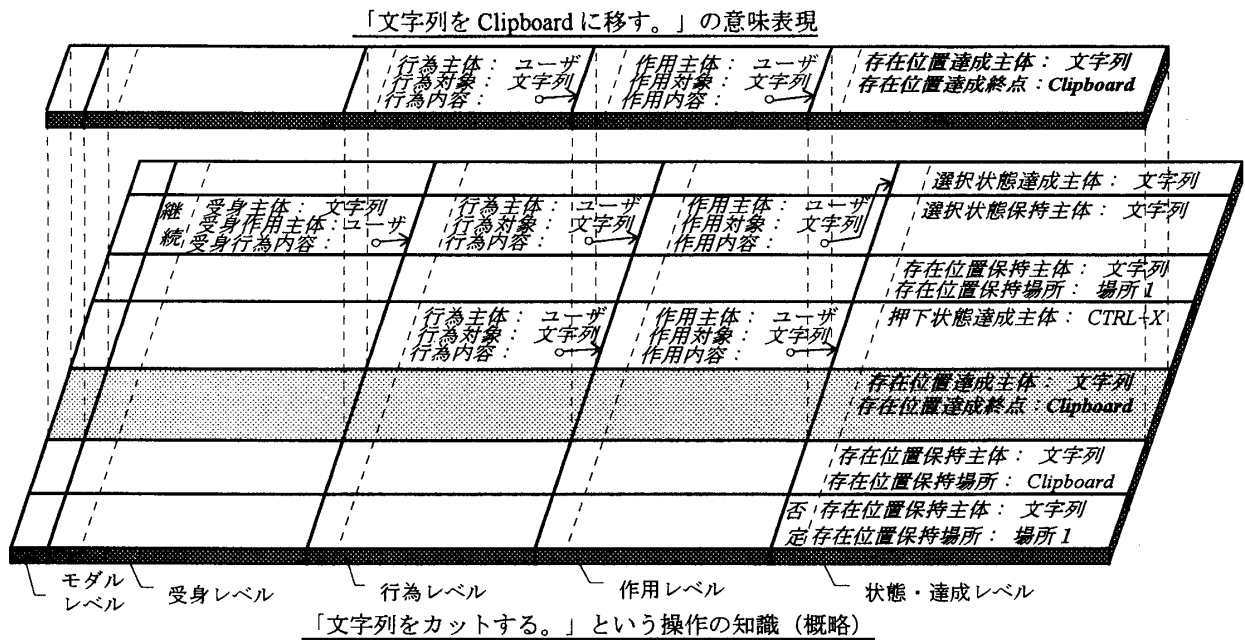 「文字列を Clipboard に移す。」の意味表現
行為主体： ユーザ
行為対象： 文字列
行為内容：
作用主体： ユーザ
作用対象： 文字列
作用内容：
存在位置達成主体： 文字列
存在位置達成終点：Clipboard
選択状態達成主体： 文字列
継続
受身主体： 文字列
受身作用主体：ユーザ
受身行為内容：
行為主体： ユーザ
行為対象： 文字列
行為内容：
作用主体： ユーザ
作用対象： 文字列
作用内容：
選択状態保持主体： 文字列
存在位置保持主体： 文字列
存在位置保持場所： 場所1
行為主体： ユーザ
行為対象： 文字列
行為内容：
作用主体： ユーザ
作用対象： 文字列
作用内容：
押下状態達成主体： CTRL-X
存在位置達成主体： 文字列
存在位置達成終点：Clipboard
存在位置保持主体： 文字列
存在位置保持場所： Clipboard
否定
存在位置保持主体： 文字列
存在位置保持場所： 場所1
モダル
レベル
受身レベル
行為レベル
作用レベル
状態・達成レベル
「文字列をカットする。」という操作の知識（概略）